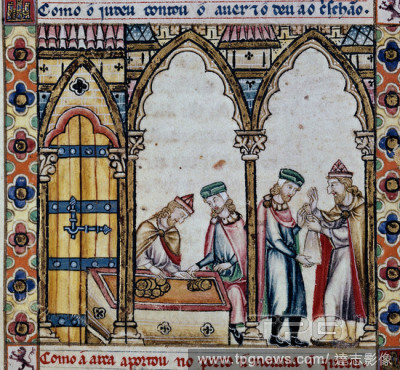 Como o judeu contou o aver z o deu ao c̃schão.
TPG
Como a arca aportou no
www.tpgnews.com/ 達志影像